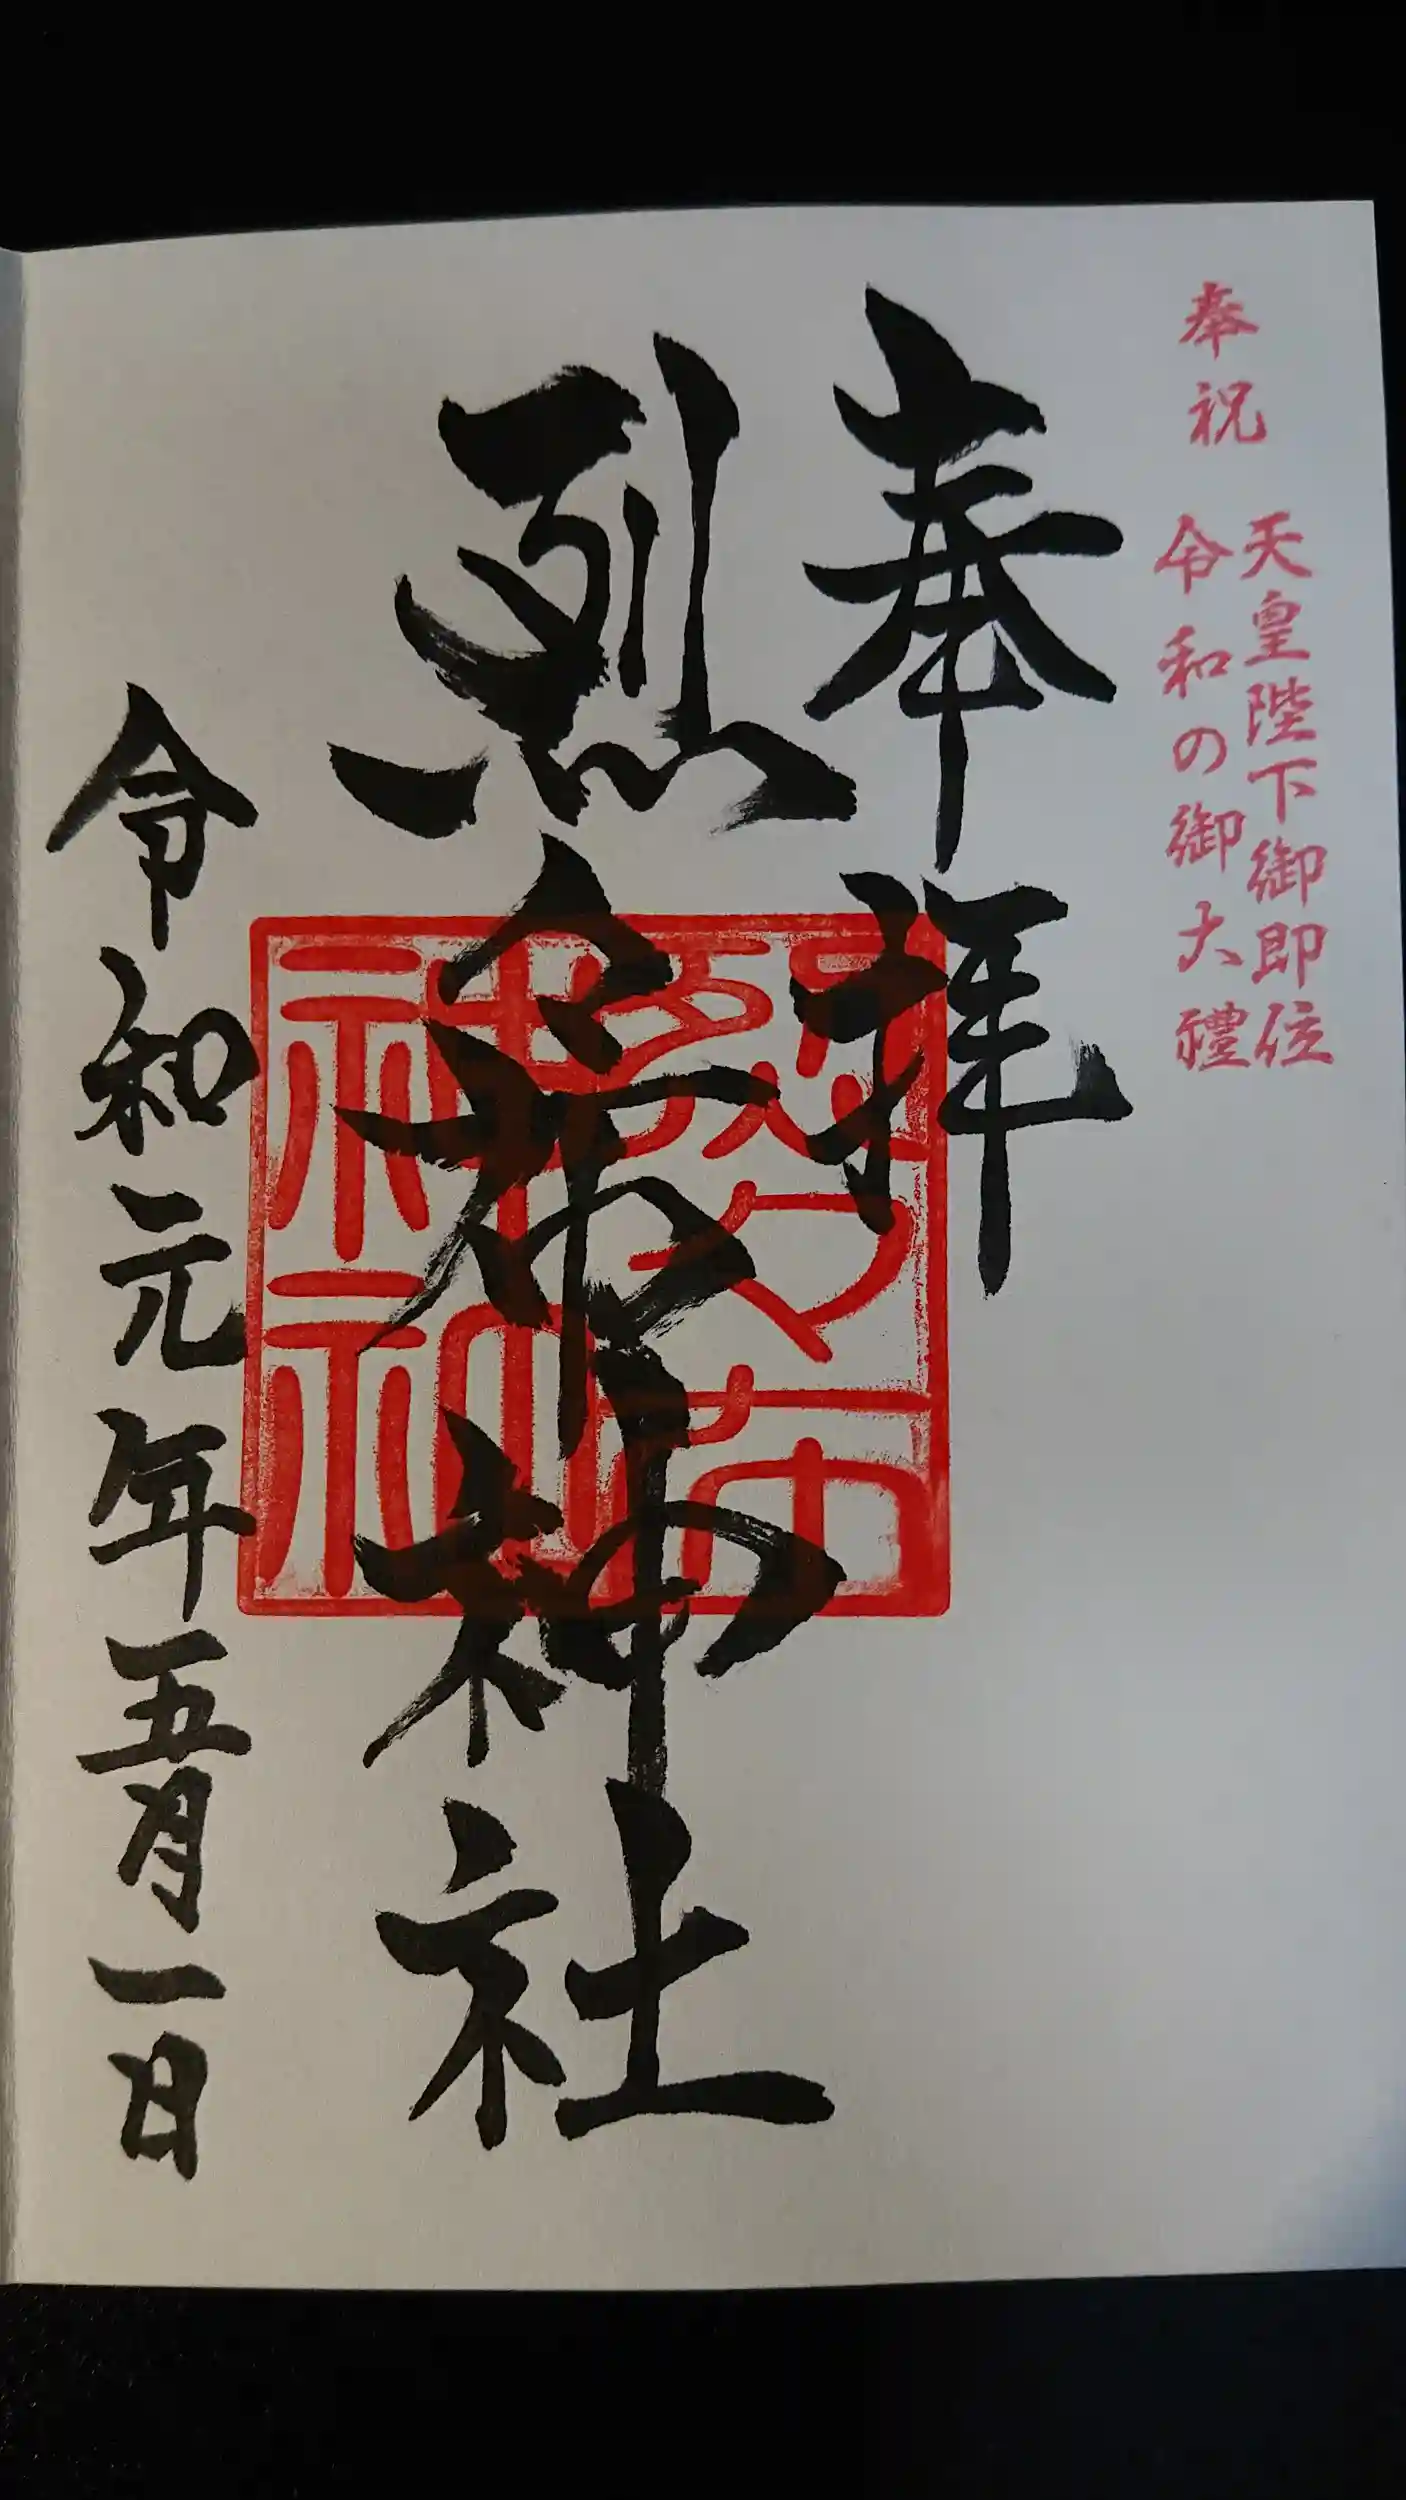 奉祝
天皇陛下御即位
令和の御大禮
奉拝
烈々布神社
令和元年五月一日
烈々布